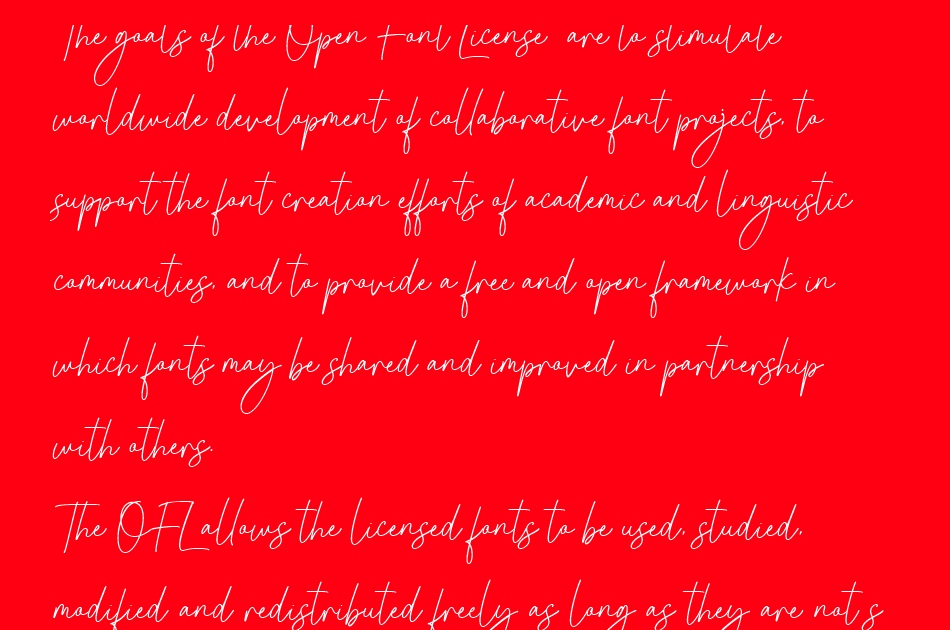 The goals of the Open Font License are to stimulate
worldwide development of collaborative font projects, to
support the font creation efforts of academic and linguistic
communities, and to provide a free and open framework in
which fonts may be shared and improved in partnership
with others.
The OFL allows the licensed fonts to be used, studied,
modified and redistributed freely as long as they are not s